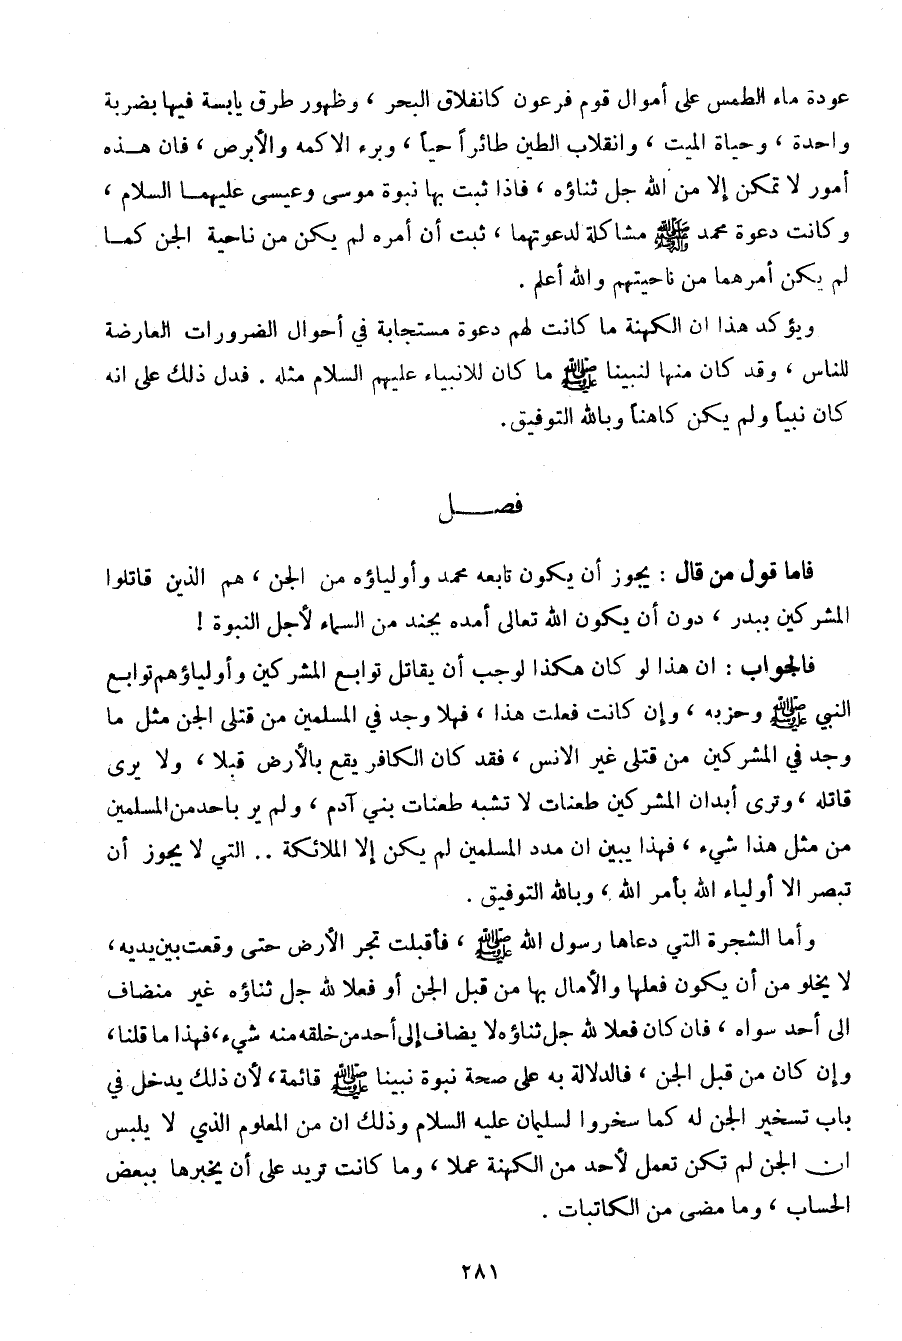 عودة ماء الطمس على أموال قوم فرعون كانفلاق البحر ، وظهور طرق يابسة فيها بضربة
واحدة ، وحياة الميت ، وانقلاب الطين طائراً حياً ، وبرء الاكمه والأبرص ، فان هـذه
أمور لا تمكن إلا من الله جل ثناؤه ، فاذا ثبت بها نبوة موسى وعيسى عليهمـا السلام ،
وكانت دعوة محمد ﷺ مشاكلة لدعوتهما ، ثبت أن أمره لم يكن من ناحية الجن كمـا
لم يكن أمرهما من ناحيتهم والله أعلم .
ويؤكد هذا ان الكهنة ما كانت لهم دعوة مستجابة في أحوال الضرورات العارضة
للناس ، وقد كان منها لنبينا ﷺ ما كان للانبياء عليهم السلام مثله . فدل ذلك على انه
كان نبياً ولم يكن كاهناً وبالله التوفيق .
فصـــل
فاما قول من قال : يجوز أن يكون تابعه محمد وأولياؤه من الجن ، هم الذين قاتلوا
المشركين ببدر ، دون أن يكون الله تعالى أمده بجند من السماء لأجل النبوة !
فالجواب : ان هذا لو كان هكذا لوجب أن يقاتل توابع المشركين وأولياؤهم توابع
النبي ﷺ وحزبه ، وإن كانت فعلت هذا ، فهلا وجد في المسلمين من قتلى الجن مثل ما
وجد في المشركين من قتلى غير الانس ، فقد كان الكافر يقع بالأرض قبلا ، ولا يرى
قاتله ، وترى أبدان المشركين طعنات لا تشبه طعنات بني آدم ، ولم ير باحد من المسلمين
من مثل هذا شيء ، فهذا يبين ان مدد المسلمين لم يكن إلا الملائكة .. التي لا يجوز أن
تبصر الا أولياء الله بأمر الله ، وبالله التوفيق .
وأما الشجرة التي دعاها رسول الله ﷺ ، فأقبلت تجر الأرض حتى وقعت بين يديه ،
لا يخلو من أن يكون فعلها والأمال بها من قبل الجن أو فعلا لله جل ثناؤه غير منضاف
الى أحد سواه ، فان كان فعلا لله جل ثناؤه لا يضاف إلى أحد من خلقه منه شيء ، فهذا ما قلنا ،
وإن كان من قبل الجن ، فالدلالة به على صحة نبوة نبينا ﷺ قائمة ، لأن ذلك يدخل في
باب تسخير الجن له كما سخروا لسليمان عليه السلام وذلك ان من المعلوم الذي لا يلبس
ان الجن لم تكن تعمل لأحد من الكهنة عملا ، وما كانت تريد على أن يخبرها ببعض
الحساب ، وما مضى من الكاتبات .
٢٨١